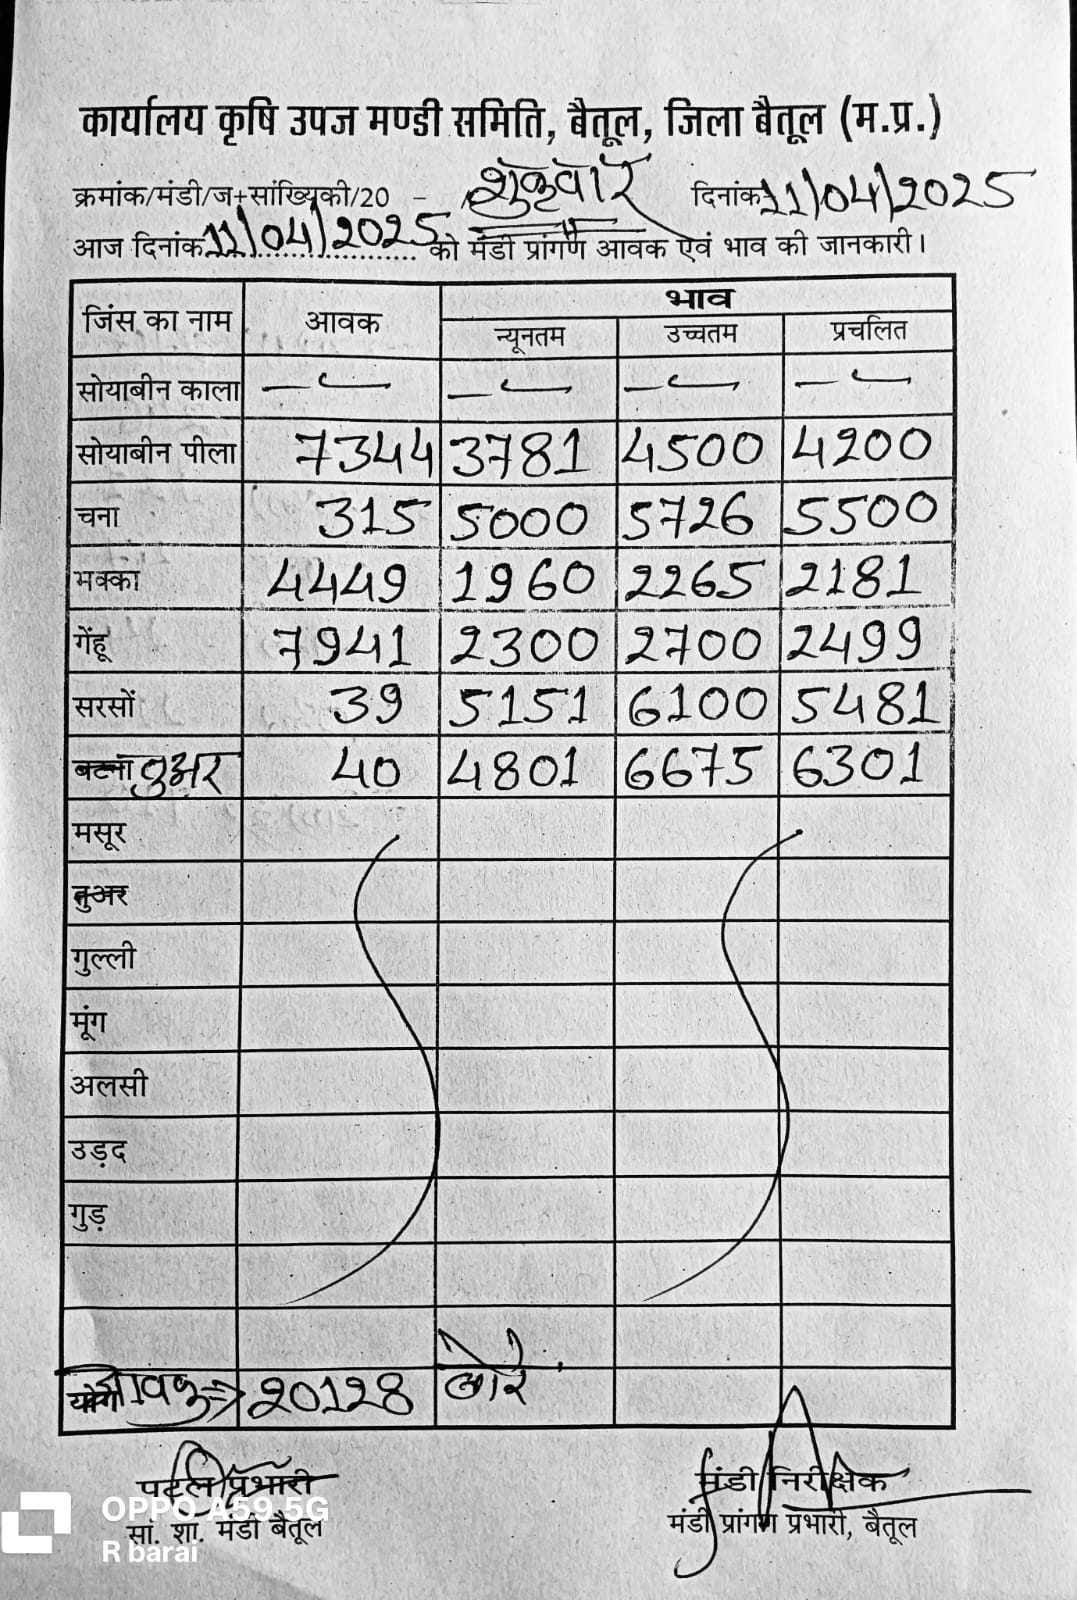 कार्यालय कृषि उपज मण्डी समिति, बैतूल, जिला बैतूल (म.प्र.)
क्रमांक/मंडी/ज+सांख्यिकी/20 - शुक्रवार दिनांक 11/04/2025
आज दिनांक 11/04/2025 को मंडी प्रांगण आवक एवं भाव की जानकारी।
जिंस का नाम आवक भाव
न्यूनतम उच्चतम प्रचलित
सोयाबीन काला — — — —
सोयाबीन पीला 7344 3781 4500 4200
चना 315 5000 5726 5500
मक्का 4449 1960 2265 2181
गेंहू 7941 2300 2700 2499
सरसों 39 5151 6100 5481
बटना तुअर 40 4801 6675 6301
मसूर
तुअर
गुल्ली
मूंग
अलसी
उड़द
गुड़
आवक => 20128 बोरे
पटल प्रभारी मंडी निरीक्षक
सां. शा. मंडी बैतूल मंडी प्रांगण प्रभारी, बैतूल
OPPO A59 5G
R barai